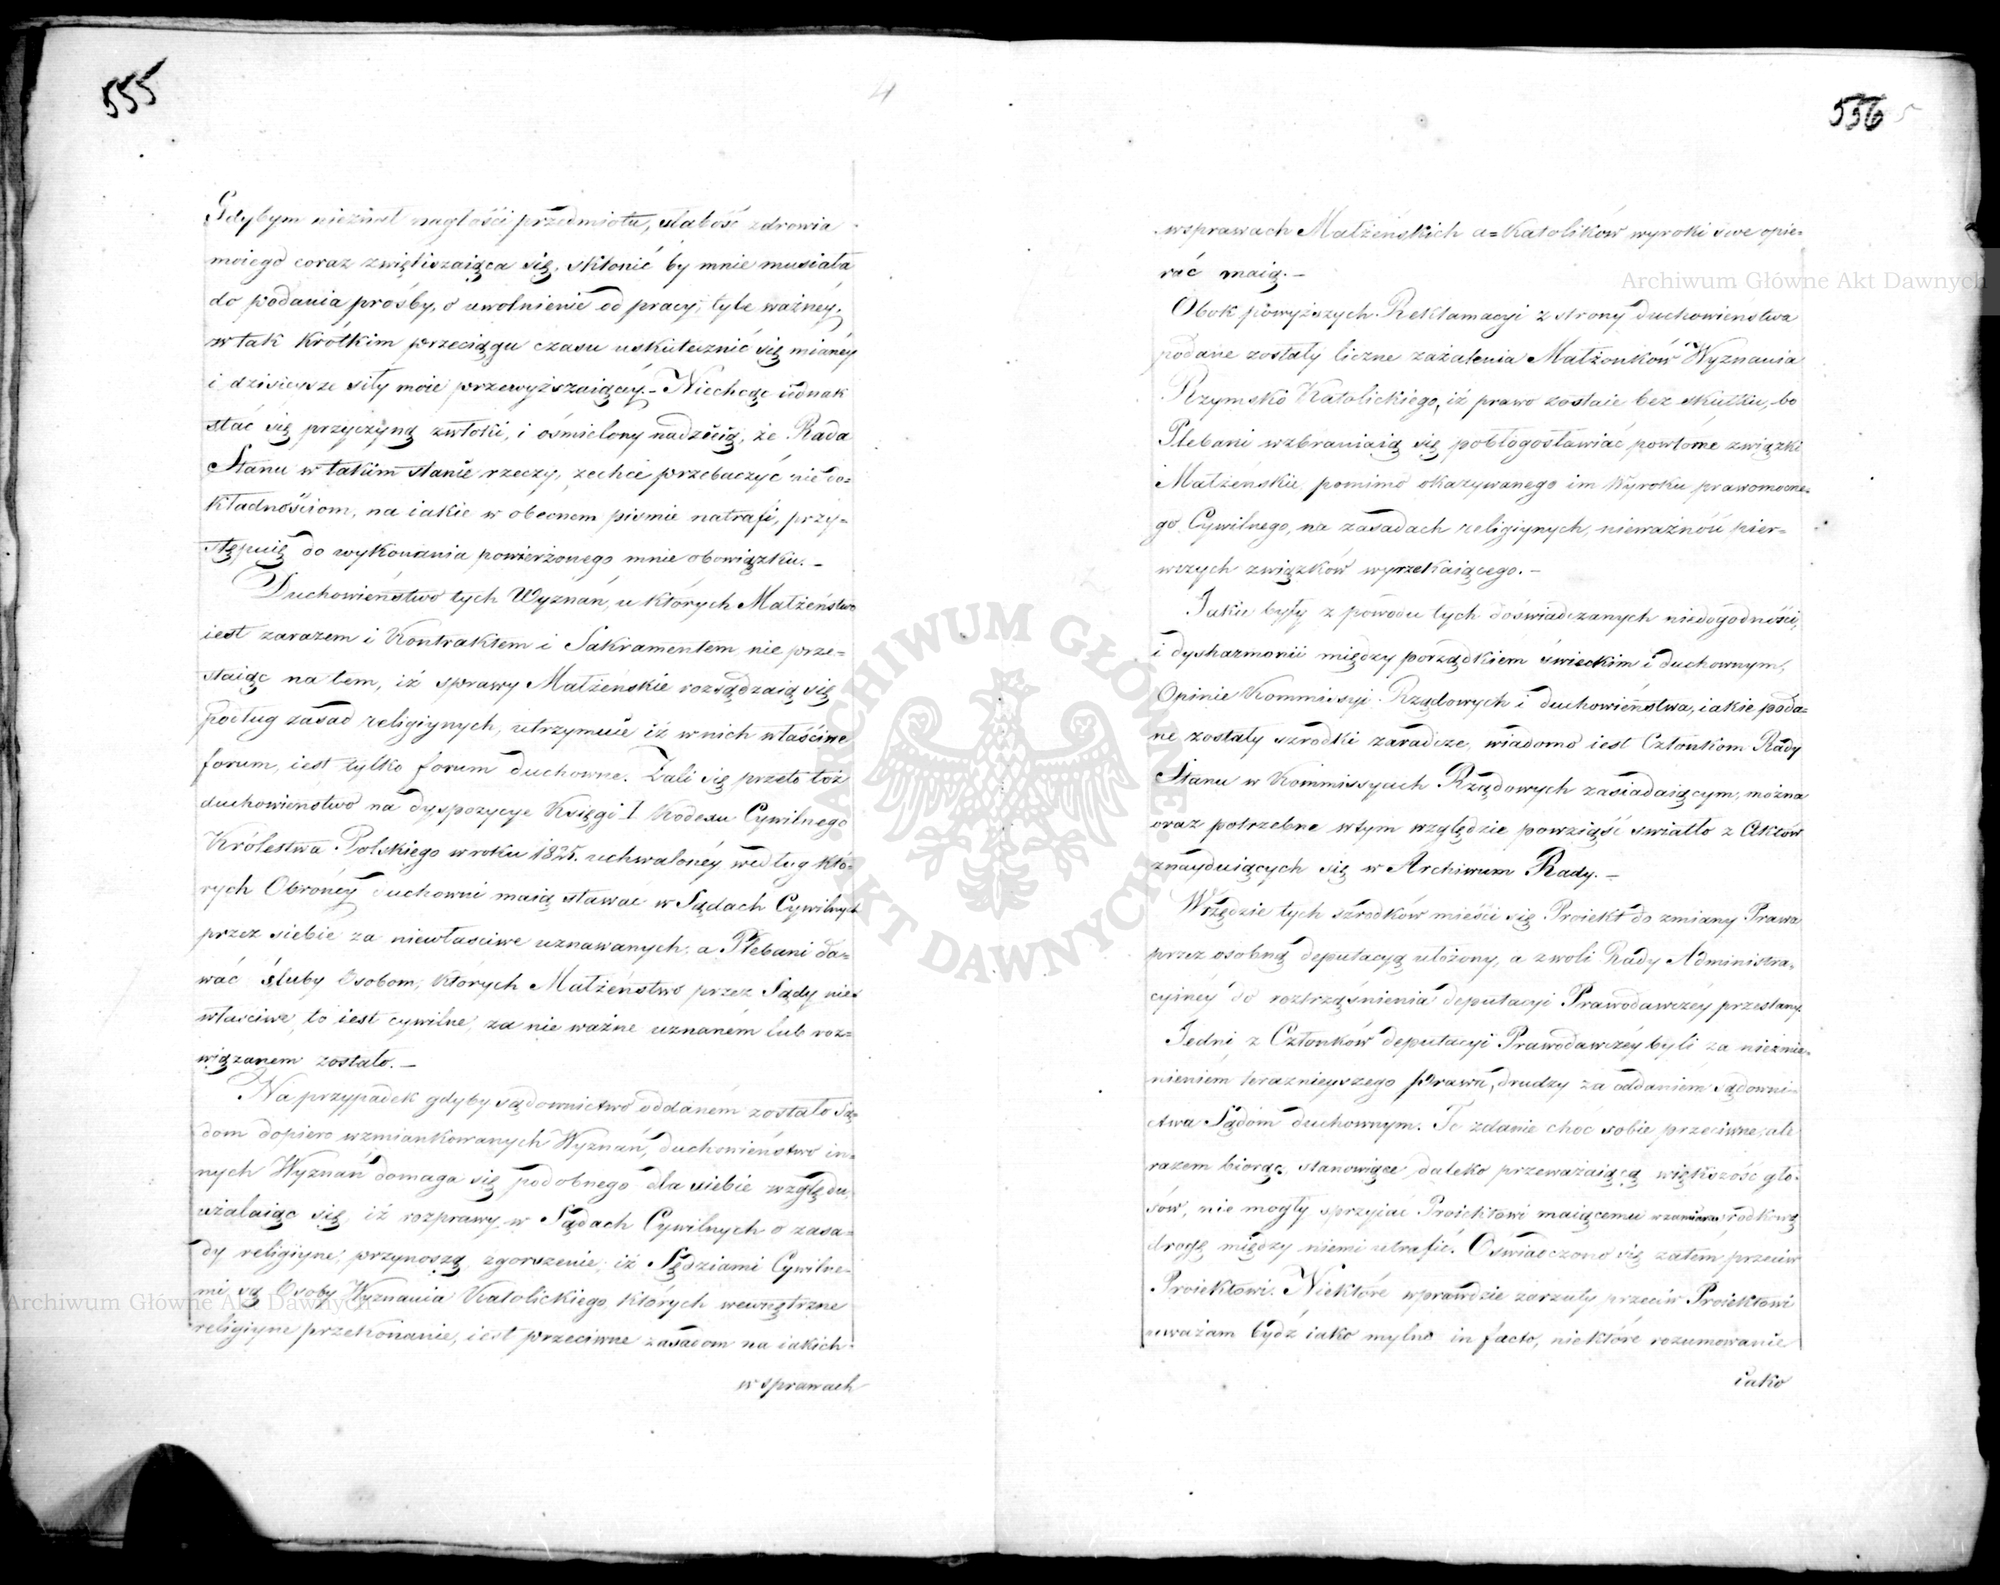 555
4
Gdybym nieznał nagłości przedmiotu, słabość zdrowia
moiego coraz zwiększaiąca się, skłonić by mnie musiała
do podania prośby, o uwolnienie od pracy, tyle ważnéy,
w tak krótkim przeciągu czasu uskutecznić się mianéy
i dzisieysze siły moie przewyższaiącéy. – Niechcąc iednak
stać się przyczyną zwłoki, i ośmielony nadzieią, że Rada
Stanu w takim stanie rzeczy, zechce przebaczyć niedo=
kładnościom, na iakie w obecnem piśmie natrafi, przy=
stępuię do wykonania powierzonego mnie obowiązku. –
Duchowieństwo tych Wyznań, u których Małżeństwo
iest zarazem i Kontraktem i Sakramentem nie prze=
staiąc na tem, iż sprawy Małżeńskie rozsądzaią się
podług zasad religiynych, utrzymuie iż w nich właściwe
forum, iest tylko forum duchowne. Żali się przeto toż
duchowieństwo na dyspozycye Księgi I Kodexu Cywilnego
Królestwa Polskiego w roku 1825. uchwalonéy, według któ=
rych Obrońcy duchowni maią stawać w Sądach Cywilnych
przez siebie za niewłaściwe uznawanych, a Plebani da=
wać śluby Osobom, których Małżeństwo przez Sądy nie=
właściwe, to iest cywilne, za nie ważne uznaném lub roz=
wiązanem zostało. –
Na przypadek gdyby sądownictwo oddanem zostało Są=
dom dopiero wzmiankowanych Wyznań, duchowieństwo in=
nych Wyznań domaga się podobnego dla siebie względu,
użalaiąc się, iż rozprawy w Sądach Cywilnych o zasa=
dy religiyne, przynoszą zgorszenie, iż Sędziami Cywilne=
mi są Osoby Wyznania Katolickiego, których wewnętrzne
religiyne przekonanie, iest przeciwne zasadom na iakich
w sprawach
556
5
w sprawach Małżeńskich a=Katolików wyroki swe opie=
rać maią. –
Obok powyższych Reklamacyi z strony duchowieństwa
podane zostały liczne zażalenia Małżonków Wyznania
Rzymsko Katolickiego, iż prawo zostaie bez skutku, bo
Plebani wzbraniaią się pobłogosławiać powtórne związki
Małżeńskie, pomimo okazywanego im Wyroku prawomocne=
go Cywilnego, na zasadach religiynych, nieważność pier=
wszych związków wyrzekaiącego. –
Jakie były z powodu tych doświadczanych niedogodności,
i dysharmonii między porządkiem świeckim i duchownym,
Opinie Kommissyi Rządowych i duchowieństwa, iakie poda=
ne zostały szrodki zaradcze, wiadomo iest Członkom Rady
Stanu w Kommissyach Rządowych zasiadaiącym, można
oraz potrzebne w tym względzie powziąść światło z Aktów
znayduiących się w Archiwum Rady. –
W rzędzie tych szrodków mieści się Proiekt do zmiany Prawa
przez osobną deputacyą ułożony, a z woli Rady Administra=
cyinéy do roztrząśnienia deputacyi Prawodawczéy przesłany.
Jedni z Członków deputacyi Prawodawczéy byli za niezmie=
nieniem teraznieyszego Prawa, drudzy za oddaniem sądowni=
ctwa Sądom duchownym. Te zdanie choć sobie przeciwne, ale
razem biorąc, stanowiące daleko przeważaiącą większość gło=
sów, nie mogły sprzyiać Proiektowi maiącemu w zamiarze szrodkową
drogę między niemi utrafić. Oświadczono się zatem przeciw
Proiektowi. Niektóre wprawdzie zarzuty przeciw Proiektowi
uważam bydź iako mylne in facto, niektóre rozumowanie
iako
Archiwum Główne Akt Dawnych
Archiwum Główne Akt Dawnych
ARCHIWUM GŁÓWNE AKT DAWNYCH